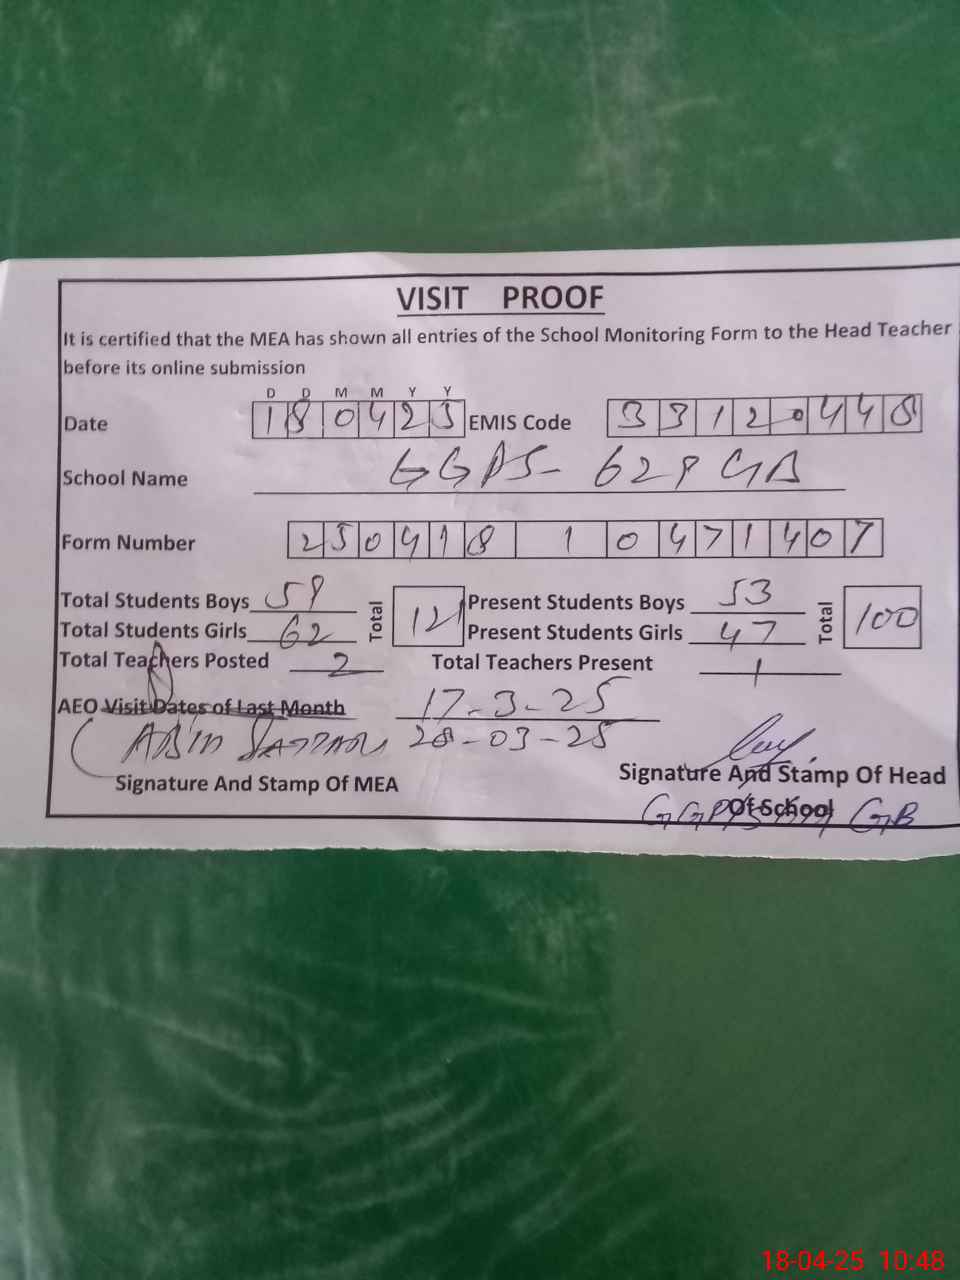 VISIT PROOF
It is certified that the MEA has shown all entries of the School Monitoring Form to the Head Teacher
before its online submission
D D M M Y Y
Date 180425 EMIS Code 33120448
School Name GGPS- 629 GB
Form Number 250418 1 0471407
Total Students Boys 59 Total 121 Present Students Boys 53 Total 100
Total Students Girls 62 Present Students Girls 47
Total Teachers Posted 2 Total Teachers Present 1
AEO Visit Dates of Last Month 17-3-25
28-03-25
Signature And Stamp Of MEA Signature And Stamp Of Head
Of School
GB
18-04-25 10:48